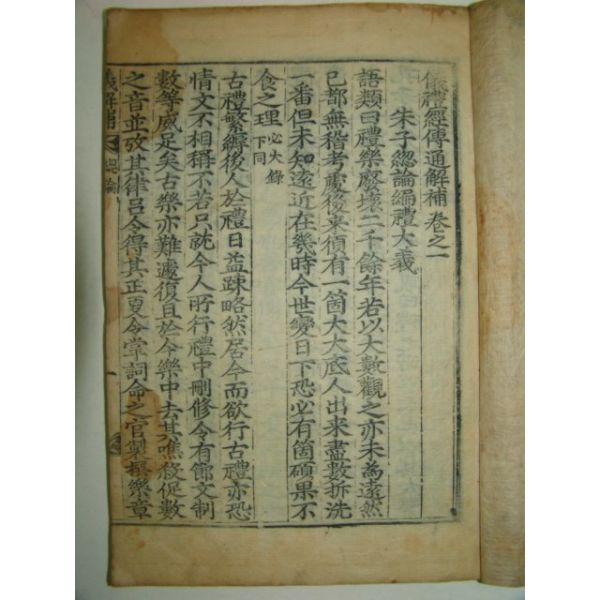 儀禮經傳通解補 卷之一
朱子緫論編禮大義
語類曰禮樂廢壞二千餘年若以大數觀之亦未為遠然
已都無稽考處後來須有一箇大大底人出来盡數拆洗
一番但未知遠近在幾時今世變日下恐必有箇碩果不
食之理 必大錄 下同
古禮繁縟後人於禮日益踈略然居今而欲行古禮亦恐
情文不相稱不若只就今人所行禮中刪修令有節文制
數等威足矣古樂亦難遽復且於今樂中去其噍殺促數
之音並攷其律呂令得其正更令掌詞命之官製撰樂章
解補 緫論